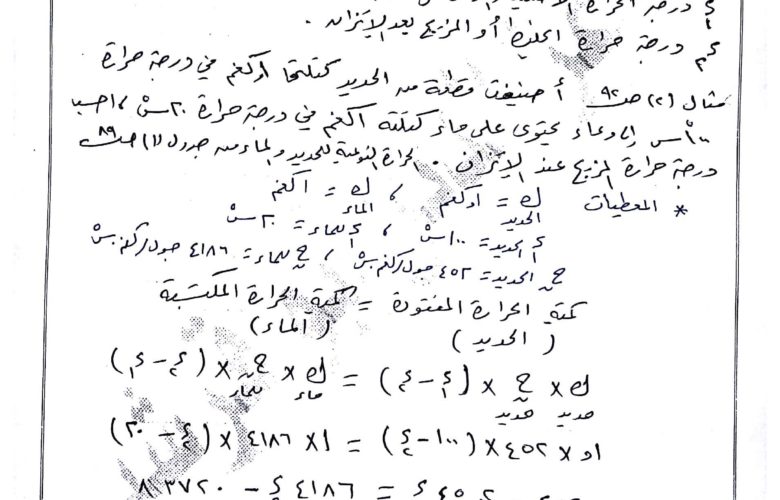 درجة حرارة
د٢ درجة حرارة الخليط أو المزيج بعد الإتزان .
مثال (٢) صـ٩٢ أضيفت قطعة من الحديد كتلتها ١و٠ كغم في درجة حرارة
١٠٠ْس إلى وعاء يحتوي على ماء كتلته ١كغم في درجة حرارة ٢٠ْس ، احسب
درجة حرارة المزيج عند الإتزان . الحرارة النوعية للحديد والماء من جدول (١) صـ٨٩
* المعطيات ك الحديد = ١و٠ كغم ، ك الماء = ١كغم
د١ الحديد = ١٠٠ْس ، د١ للماء = ٢٠ْس
ح ن الحديد = ٤٥٢ جول/كغم.ْس ، ح ن للماء = ٤١٨٦ جول/كغم.ْس
كمية الحرارة المفقودة = كمية الحرارة المكتسبة
( الحديد ) ( الماء )
ك حديد × ح ن حديد × (د١ - د٢) = ك ماء × ح ن للماء × (د٢ - د١)
١و٠ × ٤٥٢ × (١٠٠ - د٢) = ١ × ٤١٨٦ × (د٢ - ٢٠)
= ٤١٨٦ د٢ - ٨٣٧٢٠